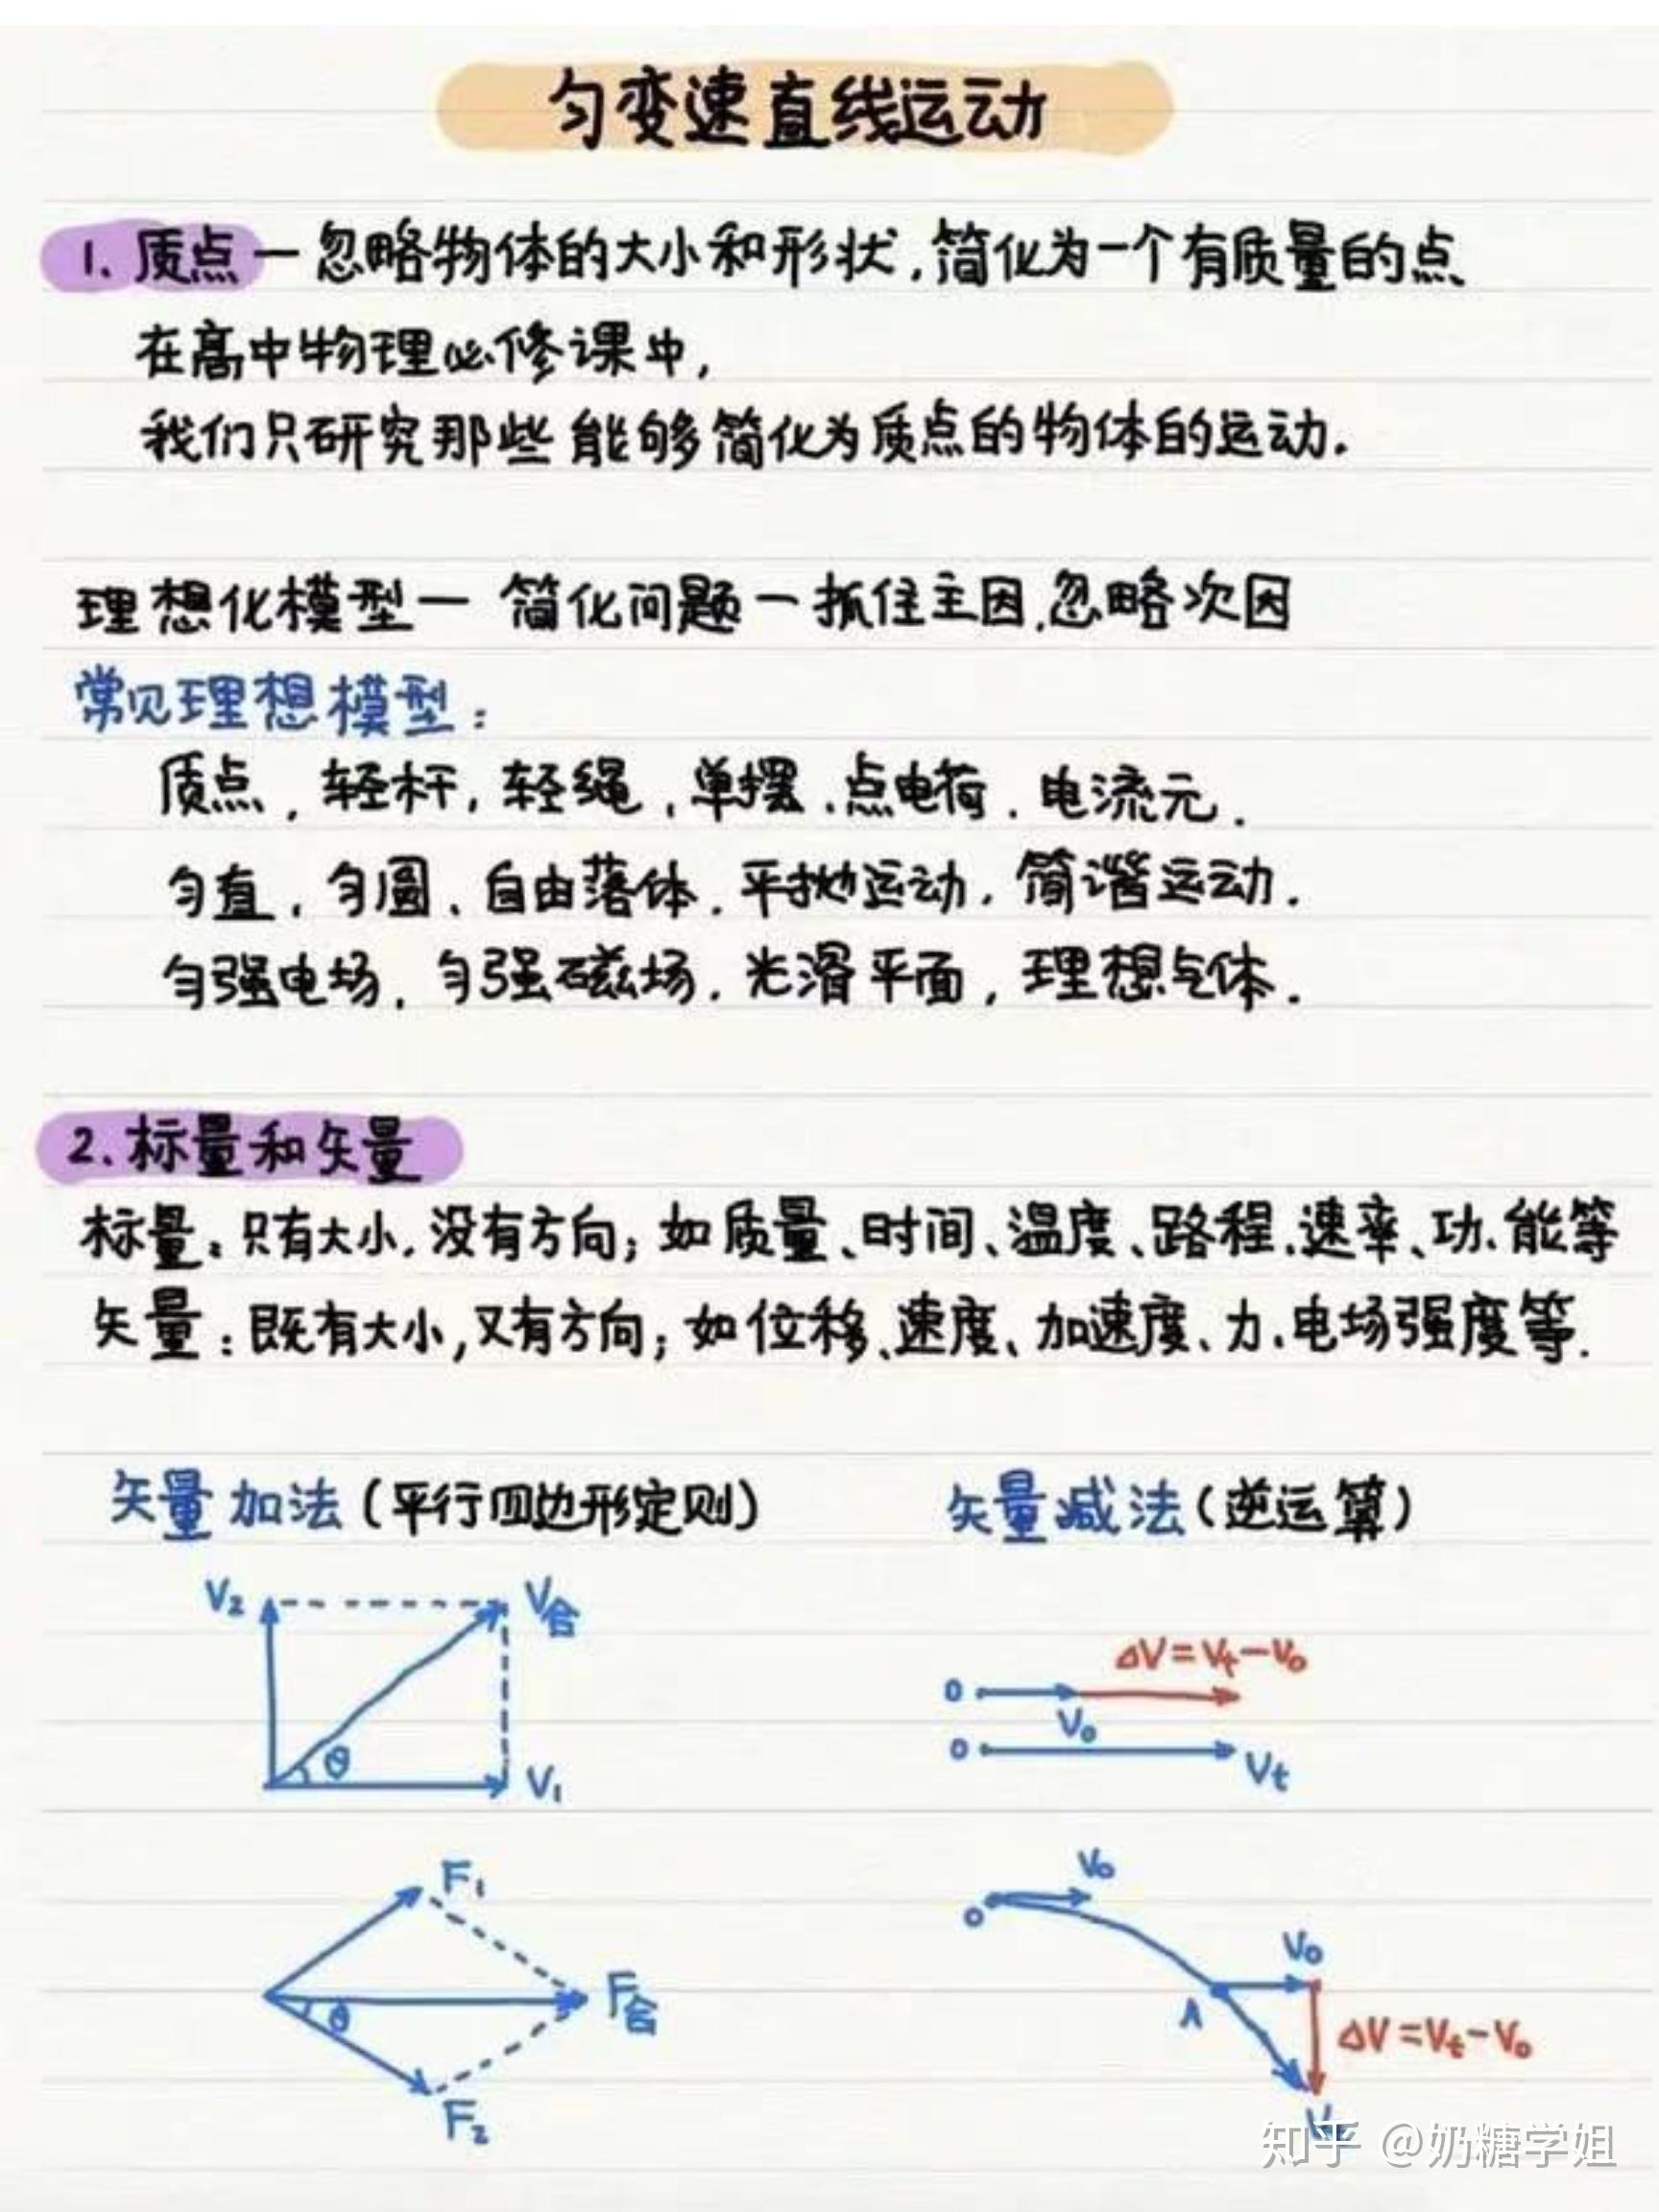 匀变速直线运动
1. 质点—忽略物体的大小和形状,简化为一个有质量的点、
在高中物理必修课中,
我们只研究那些能够简化为质点的物体的运动.
理想化模型— 简化问题—抓住主因,忽略次因
常见理想模型:
质点, 轻杆, 轻绳, 单摆、点电荷. 电流元.
匀直, 匀圆、自由落体. 平抛运动, 简谐运动.
匀强电场, 匀强磁场. 光滑平面, 理想气体.
2. 标量和矢量
标量: 只有大小, 没有方向; 如质量、时间、温度、路程、速率、功、能等
矢量: 既有大小, 又有方向; 如位移、速度、加速度、力、电场强度等.
矢量加法(平行四边形定则)
矢量减法(逆运算)
V₂
V合
θ
V₁
ΔV=Vt-V₀
0
V₀
0
Vt
F₁
F合
θ
F₂
V₀
0
V₀
A
ΔV=Vt-V₀
知乎 @奶糖学姐